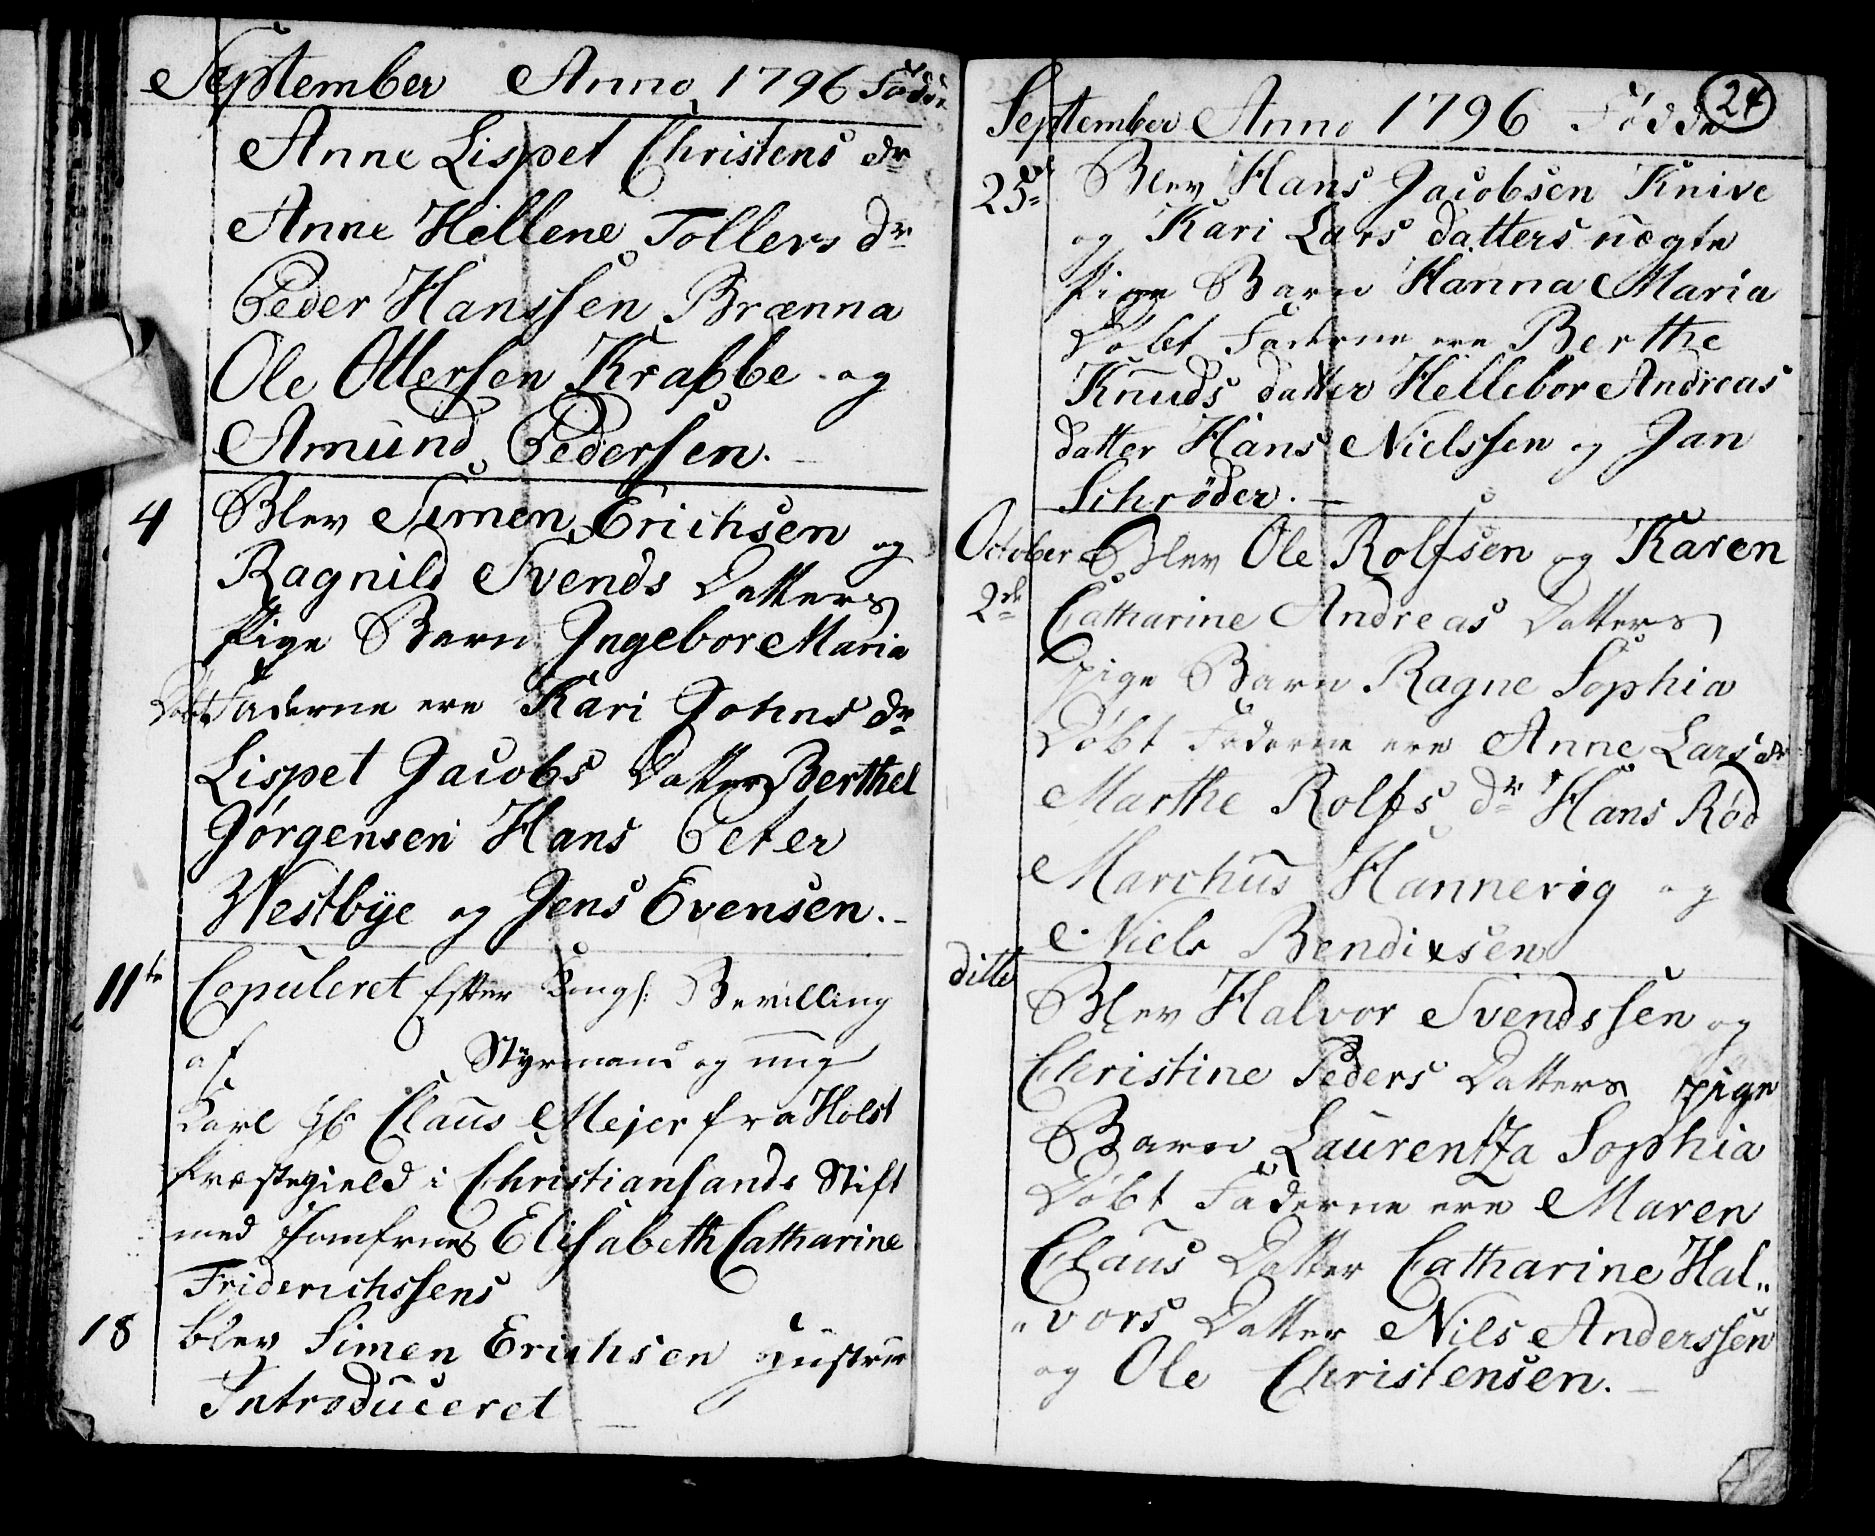 September Anno 1796 Födde
Anne Lispet Christens dr
Anne Hellene Tollers dr
Peder Hanssen Brænna
Ole Ottersen Krabbe og
Amund Pedersen.
4 Blev Simen Erichsen og
Ragnild Svends Datters
Pige Barn Ingebor Maria
Döbt Faderne ere Kari Johns dr
Lispet Jacobs Datter Berthel
Jørgensen Hans Peter
Westbÿe og Jens Evensen.
11te Copuleret Efter Kongl: Bevilling
af Styrmand og ung
Karl Hr Claus Mejer fra Holst
Præstegield i Christiansands Stift
med Jomfrue Elisabeth Catharine
Friderichssens
18 blev Simen Erichsen Hustrue
Introduceret
24
September Anno 1796 Födde
25de Blev Hans Jacobsen Knive
og Kari Lars datters uægte
Pige Barn Hanna Maria
Döbt Faderne ere Berthe
Knuds datter Hellebor Andreas
datter Hans Nielssen og Jan
Schrøder.
October Blev Ole Rolfsen og Karen
2de Catharine Andreas Datters
pige Barn Ragne Sophia
Döbt Faderne ere Anne Lars dr
Marthe Rolfs dr Hans Rød
Marchus Hannevig og
Niels Bendixsen
ditto Blev Halvor Svendssen og
Christine Peders Datters pige
Barn Laurentza Sophia
Döbt Faderne ere Maren
Claus Datter Catharine Hal„
„vors Datter Nils Anderssen
og Ole Christensen.